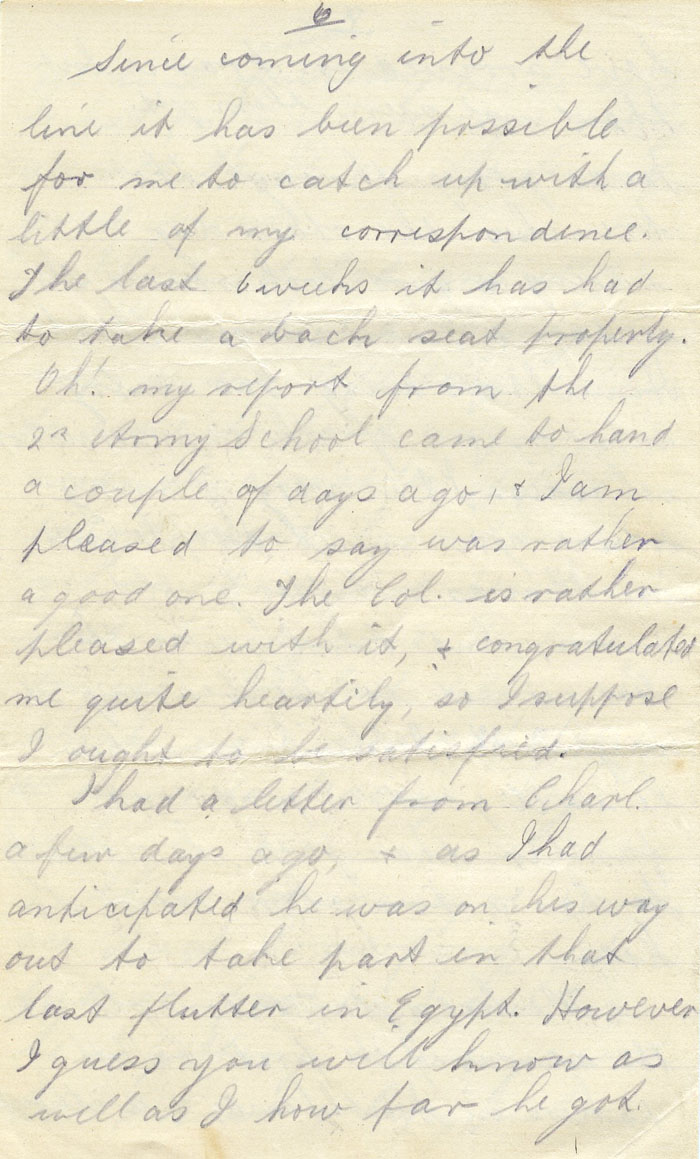 6
Since coming into the
line it has been possible
for me to catch up with a
little of my correspondence.
The last 6 weeks it has had
to take a back seat properly.
Oh! my report from the
2nd Army School came to hand
a couple of days ago, & I am
pleased to say was rather
a good one. The Col. is rather
pleased with it, & congratulated
me quite heartily, so I suppose
I ought to be satisfied.
I had a letter from Charl.
a few days ago, & as I had
anticipated he was on his way
out to take part in that
last flutter in Egypt. However
I guess you will know as
well as I how far he got.